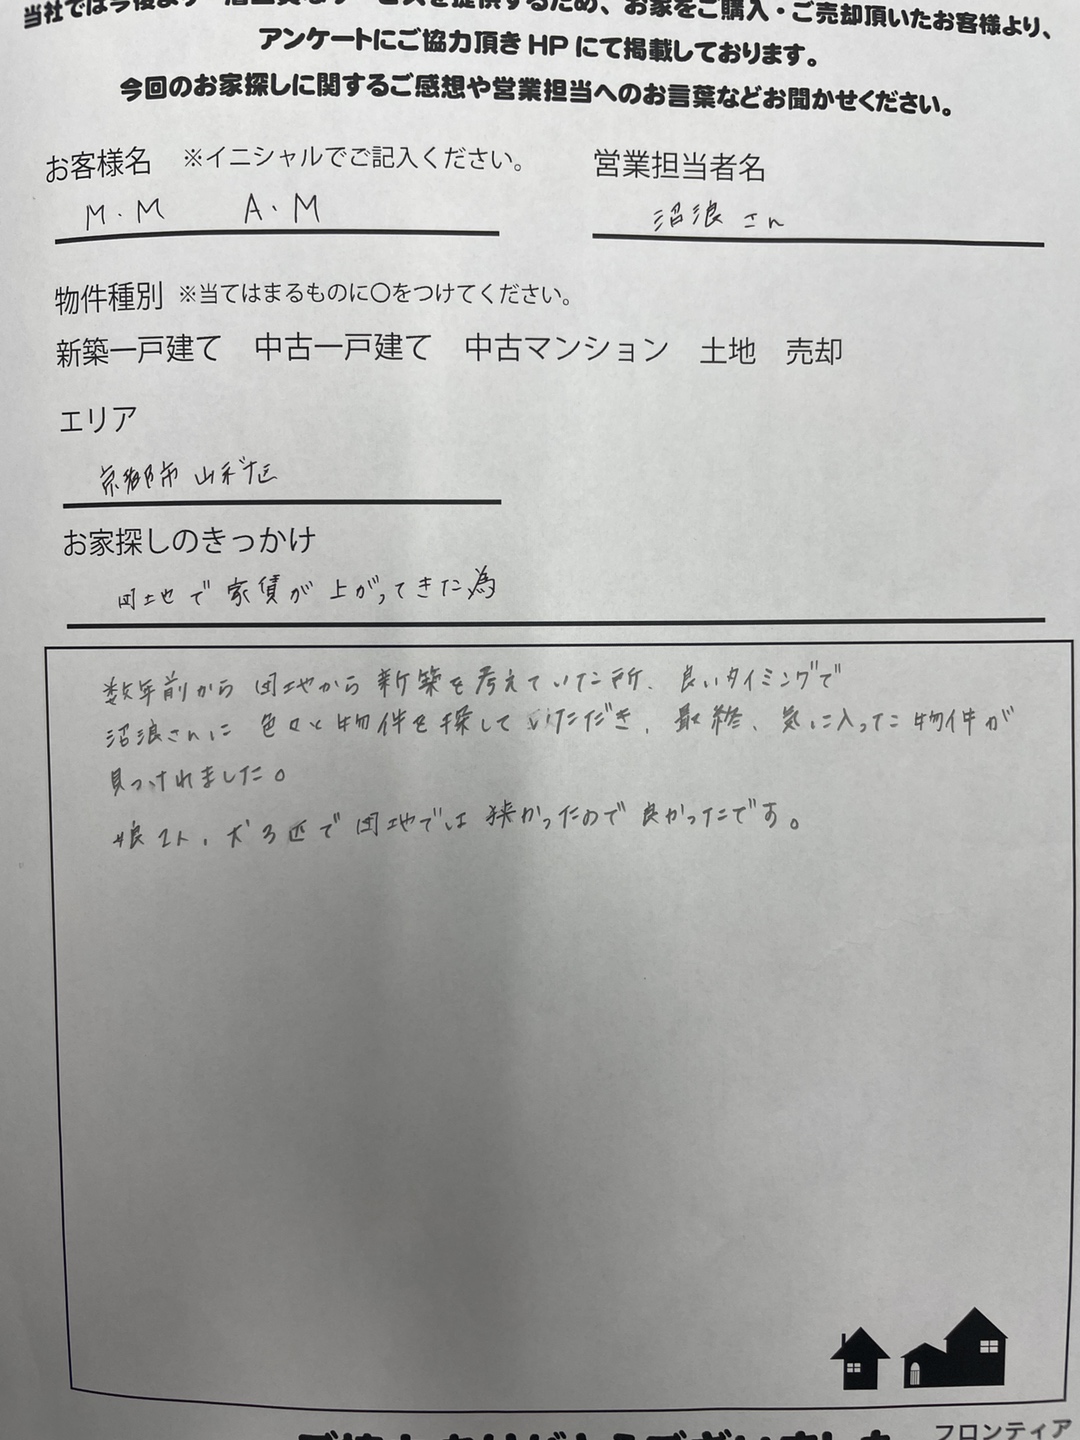 当社では今後より一層上質なサービスを提供するため、お家をご購入・ご売却頂いたお客様より、
アンケートにご協力頂き HP にて掲載しております。
今回のお家探しに関するご感想や営業担当へのお言葉などお聞かせください。
お客様名 ※イニシャルでご記入ください。 営業担当者名
M.M A.M 沼浪さん
物件種別 ※当てはまるものに〇をつけてください。
新築一戸建て 中古一戸建て 中古マンション 土地 売却
エリア
京都市 山科区
お家探しのきっかけ
団地で家賃が上がってきた為
数年前から団地から新築を考えていた所、良いタイミングで
沼浪さんに色々と物件を探していただき、最終、気に入った物件が
見つけれました。
娘2人、犬3匹で団地では狭かったので良かったです。
フロンティア